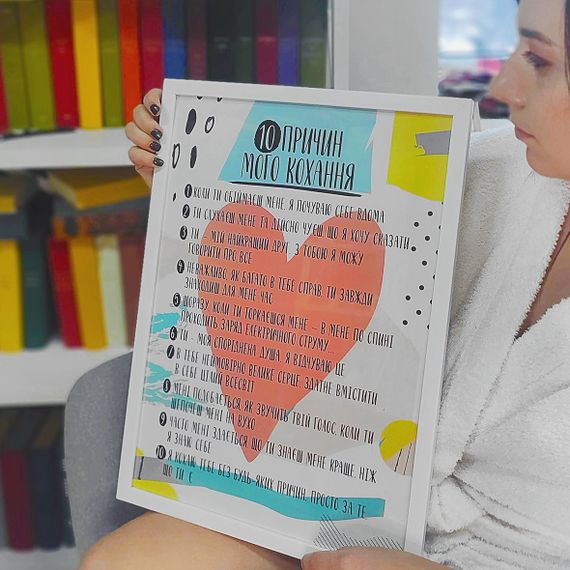 10 ПРИЧИН
МОГО КОХАННЯ
1 КОЛИ ТИ ОБІЙМАЄШ МЕНЕ, Я ПОЧУВАЮ СЕБЕ ВДОМА
2 ТИ СЛУХАЄШ МЕНЕ ТА ДІЙСНО ЧУЄШ, ЩО Я ХОЧУ СКАЗАТИ
3 ТИ - МІЙ НАЙКРАЩИЙ ДРУГ, З ТОБОЮ Я МОЖУ
ГОВОРИТИ ПРО ВСЕ
4 НЕВАЖЛИВО, ЯК БАГАТО В ТЕБЕ СПРАВ, ТИ ЗАВЖДИ
ЗНАХОДИШ ДЛЯ МЕНЕ ЧАС
5 ЩОРАЗУ, КОЛИ ТИ ТОРКАЄШСЯ МЕНЕ – В МЕНЕ ПО СПИНІ
ПРОХОДИТЬ ЗАРЯД ЕЛЕКТРИЧНОГО СТРУМУ...
6 ТИ - МОЯ СПОРІДНЕНА ДУША, Я ВІДЧУВАЮ ЦЕ
7 В ТЕБЕ НЕЙМОВІРНО ВЕЛИКЕ СЕРЦЕ, ЗДАТНЕ ВМІСТИТИ
В СЕБЕ ЦІЛИЙ ВСЕСВІТ
8 МЕНІ ПОДОБАЄТЬСЯ ЯК ЗВУЧИТЬ ТВІЙ ГОЛОС, КОЛИ ТИ
ШЕПОЧЕШ МЕНІ НА ВУХО
9 ЧАСТО МЕНІ ЗДАЄТЬСЯ ЩО ТИ ЗНАЄШ МЕНЕ КРАЩЕ, НІЖ
Я ЗНАЮ СЕБЕ
10 Я КОХАЮ ТЕБЕ БЕЗ БУДЬ-ЯКИХ ПРИЧИН, ПРОСТО ЗА ТЕ,
ЩО ТИ Є